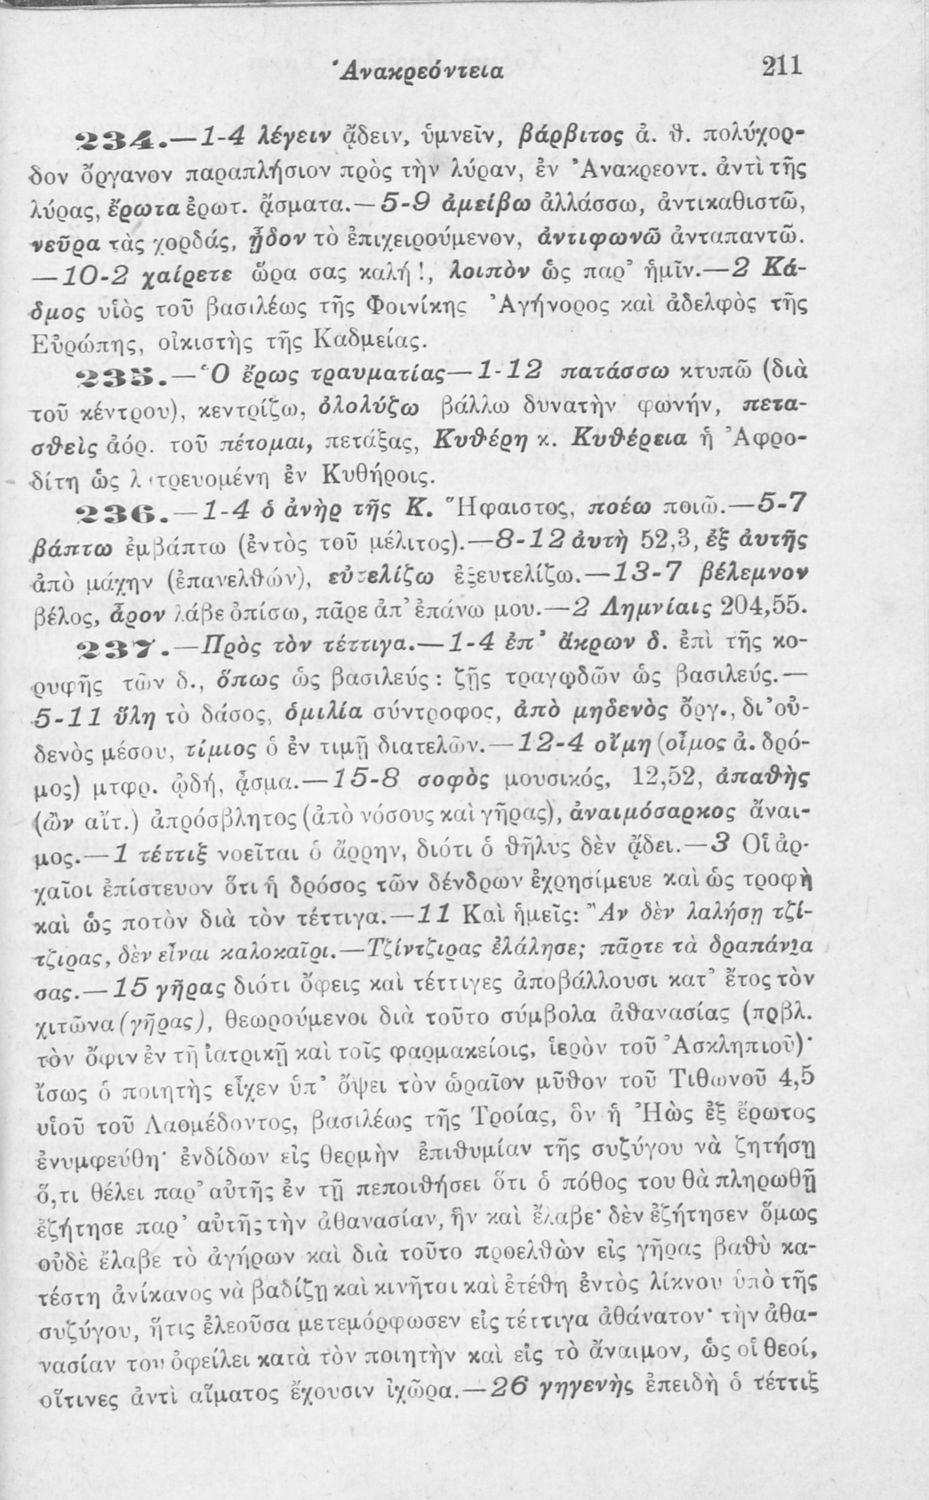 Ἀνακρεόντεια 211
234.—1-4 λέγειν ᾄδειν, ὑμνεῖν, βάρβιτος ἀ. θ. πολύχορ-
δον ὄργανον παραπλήσιον πρὸς τὴν λύραν, ἐν Ἀνακρεοντ. ἀντὶ τῆς
λύρας, ἔρωτα ἐρωτ. ᾄσματα.—5-9 ἀμείβω ἀλλάσσω, ἀντικαθιστῶ,
νεῦρα τὰς χορδάς, ᾖδον τὸ ἐπιχειρούμενον, ἀντιφωνῶ ἀνταπαντῶ.
—10-2 χαίρετε ὥρα σας καλή!, λοιπὸν ὡς παρ' ἡμῖν.—2 Κά-
δμος υἱὸς τοῦ βασιλέως τῆς Φοινίκης Ἀγήνορος καὶ ἀδελφὸς τῆς
Εὐρώπης, οἰκιστὴς τῆς Καδμείας.
235.—Ὁ ἔρως τραυματίας—1-12 πατάσσω κτυπῶ (διὰ
τοῦ κέντρου), κεντρίζω, ὀλολύζω βάλλω δυνατὴν φωνήν, πετα-
σθεὶς ἀόρ. τοῦ πέτομαι, πετάξας, Κυθέρη κ. Κυθέρεια ἡ Ἀφρο-
δίτη ὡς λατρευομένη ἐν Κυθήροις.
236.—1-4 ὁ ἀνὴρ τῆς Κ. Ἥφαιστος, ποέω ποιῶ.—5-7
βάπτω ἐμβάπτω (ἐντὸς τοῦ μέλιτος).—8-12 ἀυτὴ 52,3, ἐξ ἀυτῆς
ἀπὸ μάχην (ἐπανελθών), εὐτελίζω ἐξευτελίζω.—13-7 βέλεμνον
βέλος, ἆρον λάβε ὀπίσω, πᾶρε ἀπ' ἐπάνω μου.—2 Λημνίαις 204,55.
237.—Πρὸς τὸν τέττιγα.—1-4 ἐπ' ἄκρων δ. ἐπὶ τῆς κο-
ρυφῆς τῶν δ., ὅπως ὡς βασιλεύς: ζῇς τραγῳδῶν ὡς βασιλεύς.—
5-11 ὕλη τὸ δάσος, ὁμιλία σύντροφος, ἀπὸ μηδενὸς ὄργ., δι' οὐ-
δενὸς μέσου, τίμιος ὁ ἐν τιμῇ διατελῶν.—12-4 οἴμη (οἶμος ἀ. δρό-
μος) μτφρ. ᾠδή, ᾆσμα.—15-8 σοφὸς μουσικός, 12,52, ἀπαθὴς
(ὢν αἴτ.) ἀπρόσβλητος (ἀπὸ νόσους καὶ γῆρας), ἀναιμόσαρκος ἄναι-
μος.—1 τέττιξ νοεῖται ὁ ἄρρην, διότι ὁ θῆλυς δὲν ᾄδει.—3 Οἱ ἀρ-
χαῖοι ἐπίστευον ὅτι ἡ δρόσος τῶν δένδρων ἐχρησίμευε καὶ ὡς τροφὴ
καὶ ὡς ποτὸν διὰ τὸν τέττιγα.—11 Καὶ ἡμεῖς: Ἂν δὲν λαλήσῃ τζί-
τζιρας, δὲν εἶναι καλοκαῖρι.—Τζίντζιρας ἐλάλησε; πᾶρτε τὰ δραπάνια
σας.—15 γῆρας διότι ὄφεις καὶ τέττιγες ἀποβάλλουσι κατ' ἔτος τὸν
χιτῶνα (γῆρας), θεωρούμενοι διὰ τοῦτο σύμβολα ἀθανασίας (πρβλ.
τὸν ὄφιν ἐν τῇ ἰατρικῇ καὶ τοῖς φαρμακείοις, ἱερὸν τοῦ Ἀσκληπιοῦ)·
ἴσως ὁ ποιητὴς εἶχεν ὑπ' ὄψει τὸν ὡραῖον μῦθον τοῦ Τιθωνοῦ 4,5
υἱοῦ τοῦ Λαομέδοντος, βασιλέως τῆς Τροίας, ὃν ἡ Ἠὼς ἐξ ἔρωτος
ἐνυμφεύθη· ἐνδίδων εἰς θερμὴν ἐπιθυμίαν τῆς συζύγου νὰ ζητήσῃ
ὅ,τι θέλει παρ' αὐτῆς ἐν τῇ πεποιθήσει ὅτι ὁ πόθος του θὰ πληρωθῇ
ἐζήτησε παρ' αὐτῆς τὴν ἀθανασίαν, ἣν καὶ ἔλαβε· δὲν ἐζήτησεν ὅμως
οὐδὲ ἔλαβε τὸ ἀγήρων καὶ διὰ τοῦτο προελθὼν εἰς γῆρας βαθὺ κα-
τέστη ἀνίκανος νὰ βαδίζῃ καὶ κινῆται καὶ ἐτέθη ἐντὸς λίκνου ὑπὸ τῆς
συζύγου, ἥτις ἐλεοῦσα μετεμόρφωσεν εἰς τέττιγα ἀθάνατον· τὴν ἀθα-
νασίαν του ὀφείλει κατὰ τὸν ποιητὴν καὶ εἰς τὸ ἄναιμον, ὡς οἱ θεοί,
οἵτινες ἀντὶ αἵματος ἔχουσιν ἰχῶρα.—26 γηγενὴς ἐπειδὴ ὁ τέττιξ